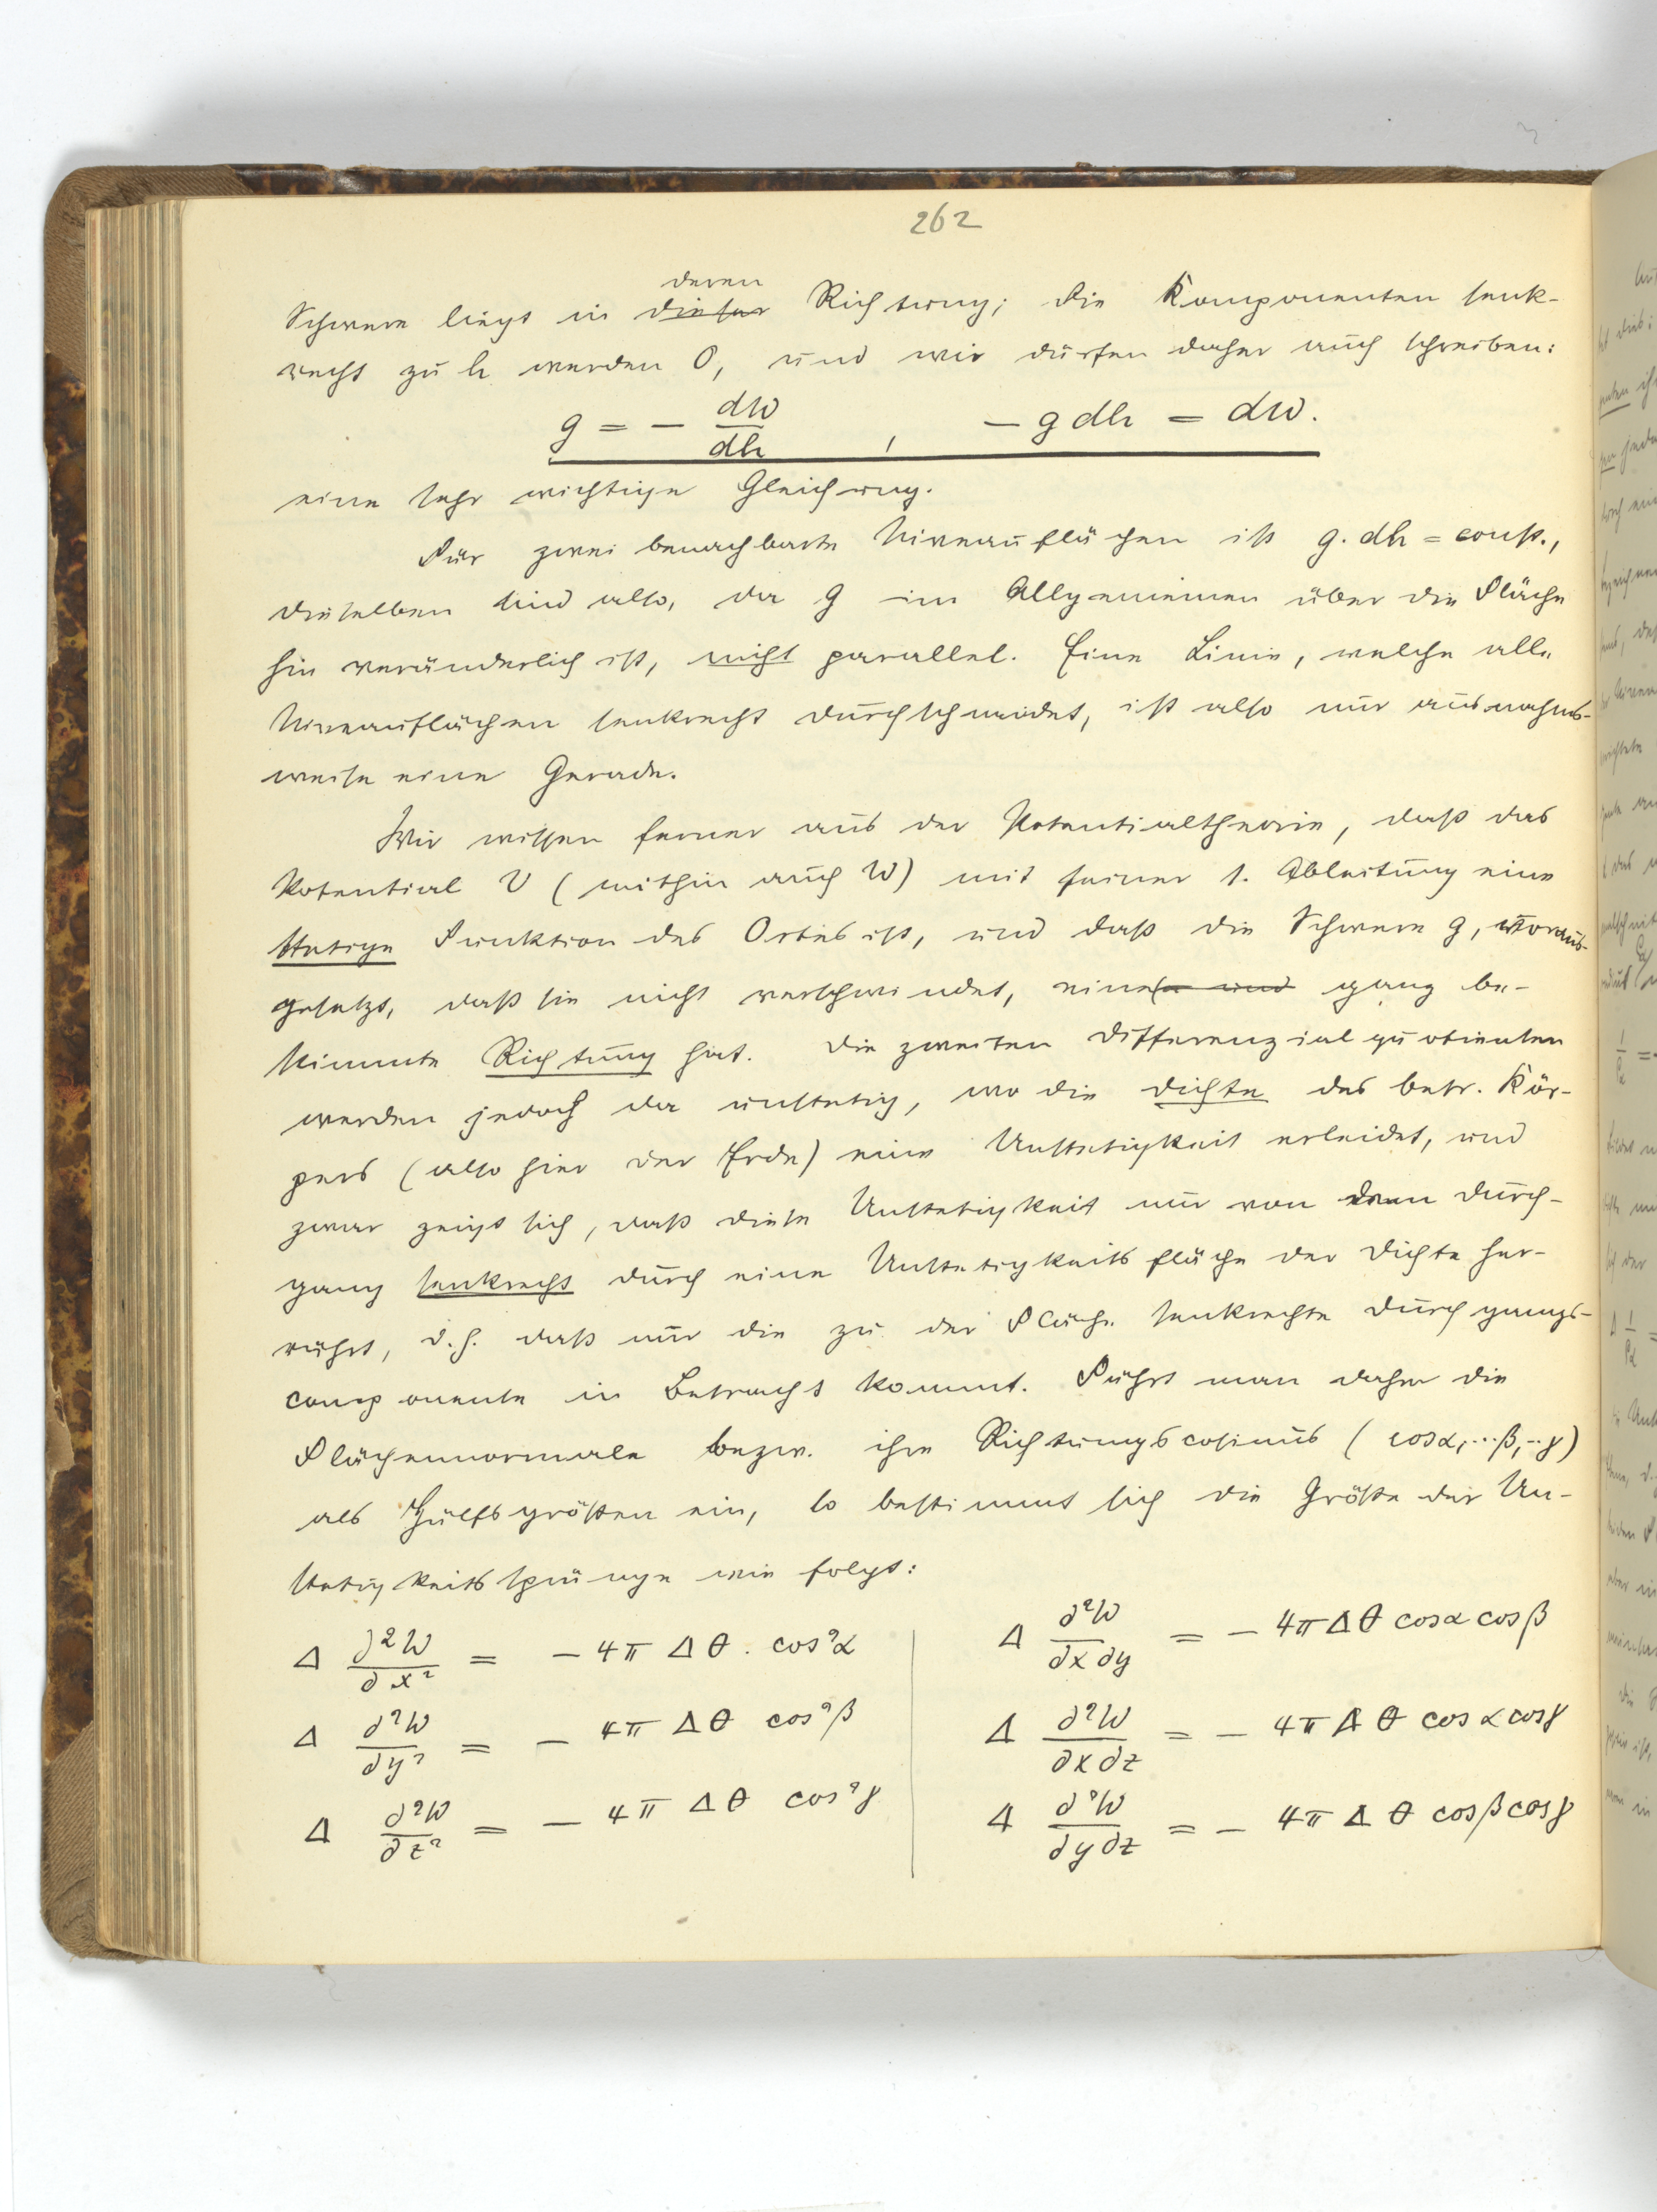 262
deren
Schwere liegt in dieser Richtung; die Komponenten senk-
recht zu h werden 0, und wir dürfen daher auch schreiben:
g = - dW/dh , - g dh = dW.
eine sehr wichtige Gleichung.
Für zwei benachbarte Niveauflächen ist g. dh = const.,
dieselben sind also, da g im Allgemeinen über die Fläche
hin veränderlich ist, nicht parallel. Eine Linie, welche alle
Niveauflächen senkrecht durchschneidet, ist also nur ausnahms-
weise eine Gerade.
Wir wissen ferner aus der Potentialtheorie, daß das
Potential V (mithin auch W) mit seiner 1. Ableitung eine
stetige Funktion des Ortes ist, und daß die Schwere g, voraus-
gesetzt, daß sie nicht verschwindet, eine und ganz be-
stimmte Richtung hat. Die zweiten Differenzialquotienten
werden jedoch da unstetig, wo die Dichte des betr. Kör-
pers (also hier der Erde) eine Unstetigkeit erleidet, und
zwar zeigt sich, daß diese Unstetigkeit nur von dem Durch-
gang senkrecht durch eine Unstetigkeitsfläche der Dichte her-
rührt, d.h. daß nur die zu der Fläche senkrechte Durchgangs-
componente in Betracht kommt. Führt man daher die
Flächennormale bezw. ihre Richtungscosinus (cosα, ··· β, ·· γ)
als Hülfsgrößen ein, so bestimmt sich die Größe der Un-
stetigkeitssprünge wie folgt:
Δ ∂²W/∂x² = - 4π Δθ . cos²α
Δ ∂²W/∂y² = - 4π Δθ cos²β
Δ ∂²W/∂z² = - 4π Δθ cos²γ
Δ ∂²W/∂x∂y = - 4π Δθ cosα cosβ
Δ ∂²W/∂x∂z = - 4π Δθ cosα cosγ
Δ ∂²W/∂y∂z = - 4π Δθ cosβ cosγ